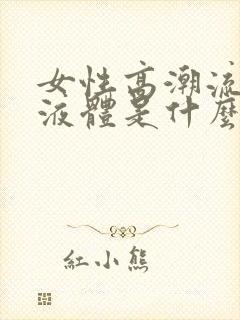 女性高潮流
液體是什麼
紅小熊